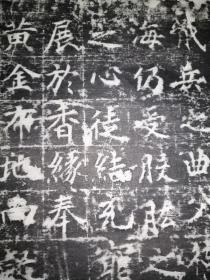 兵之曲
海仍受股肱
之心徒結充
展於香緣奉
黄金布地而